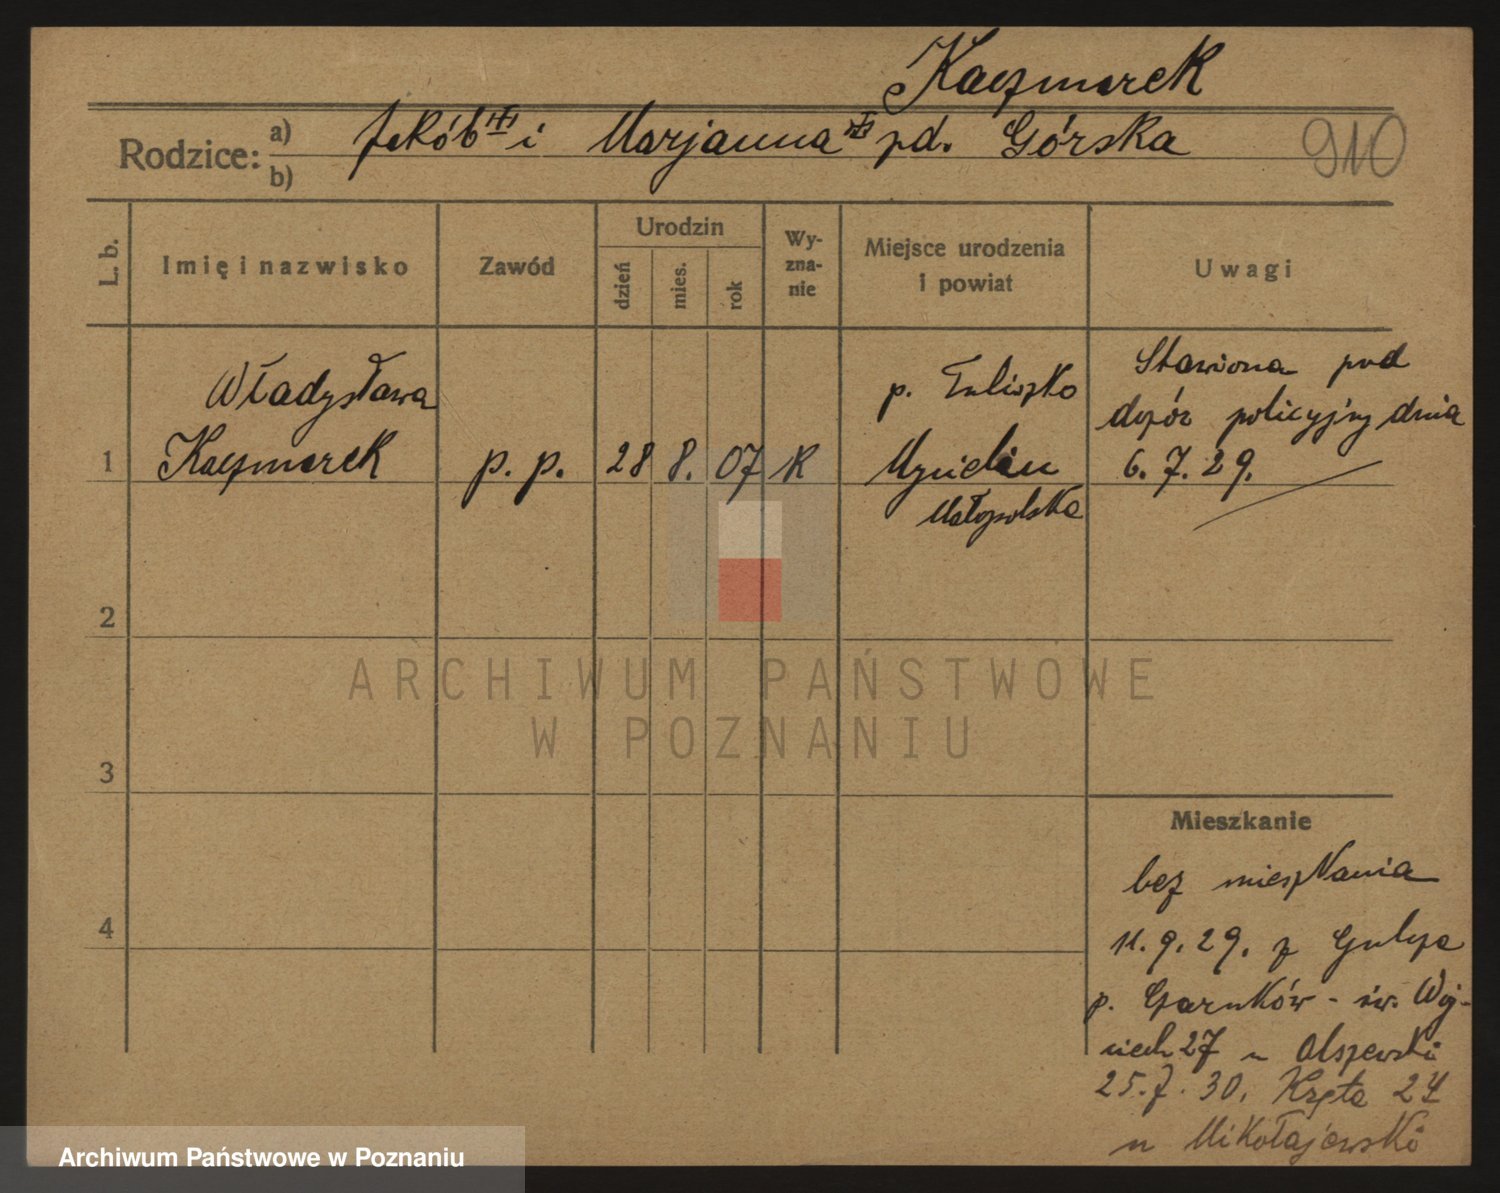 Kaczmarek
Rodzice: a) b) Jakób i Marjanna zd. Górska
910
L. b.
Imię i nazwisko
Zawód
Urodzin
dzień
mies.
rok
Wy-
zna-
nie
Miejsce urodzenia
i powiat
Uwagi
Władysława
p. Tuliszko
Stawiona pod
dozór policyjny dnia
1 Kaczmarek p. p. 28 8. 07 K 6. 7. 29.
Małopolska
2
3
4
ARCHIWUM PAŃSTWOWE
W POZNANIU
Mieszkanie
bez mieszkania
11. 9. 29. z Gulcza
p. Czarnków - św. Woj-
ciech 27 u Olszewski
25. 7. 30. Kręta 24
u Mikołajewski
Archiwum Państwowe w Poznaniu